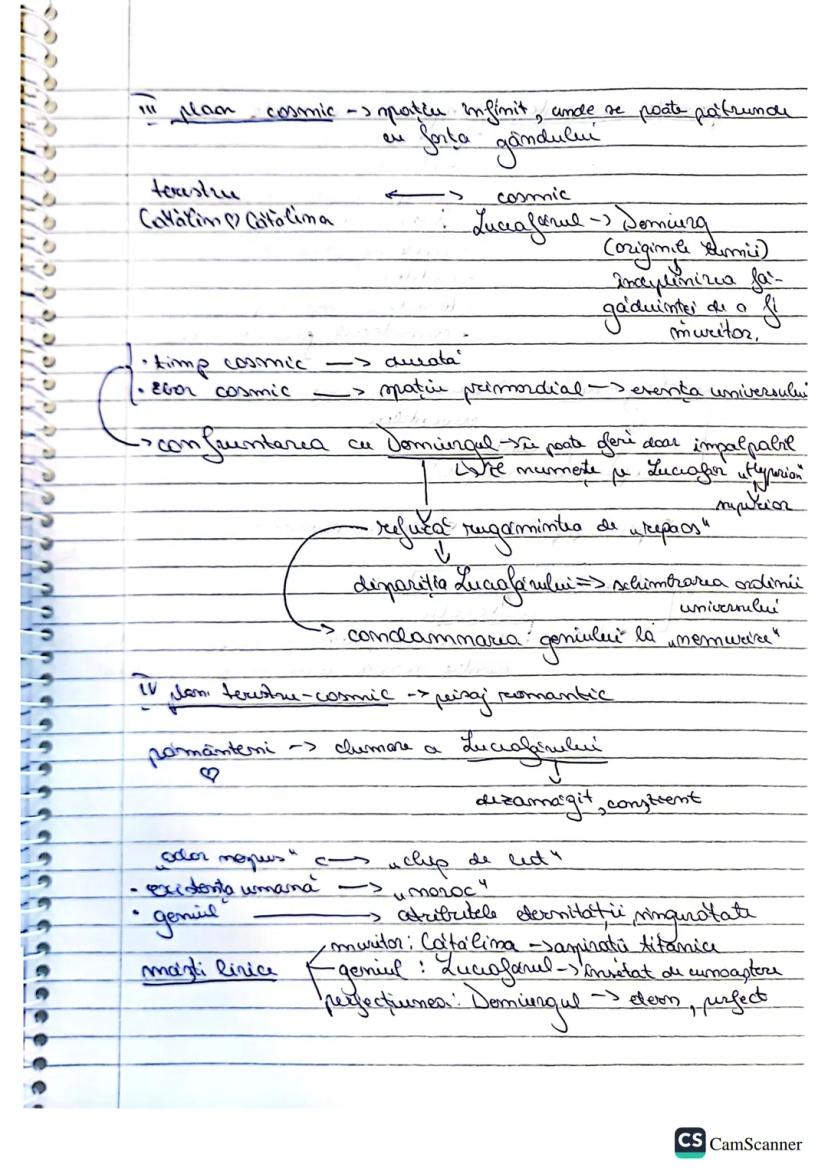 III plan cosmic -> spațiu infinit, unde se poate pătrunde
cu forța gândului
terestru <-> cosmic
Cătălin ♡ Cătălina : Luceafărul -> Demiurg
(originile lumii)
↓
îndeplinirea fă-
găduinței de a fi
muritor.
· timp cosmic -> durată
· zbor cosmic -> spațiu primordial -> esența universului
-> confruntarea cu Demiurgul -> îi poate oferi doar impalpabil
↳ îl numește pe Luceafăr „Hyperion"
↓
superior
refuză rugămintea de „repaos"
↓
dispariția Luceafărului => schimbarea ordinii
universului
-> condamnarea geniului la „nemurire"
IV plan terestru-cosmic -> peisaj romantic
pământeni -> chemare a Luceafărului
♡ ↓
dezamăgit, conștient
„odor nespus" <-> „chip de lut"
· existența umană -> „noroc"
· geniul -> atributele eternității, singurătate
muritor: Cătălina -> aspirații titanice
măști lirice geniul : Luceafărul -> însetat de cunoaștere
perfecțiunea: Demiurgul -> etern, perfect
CS CamScanner